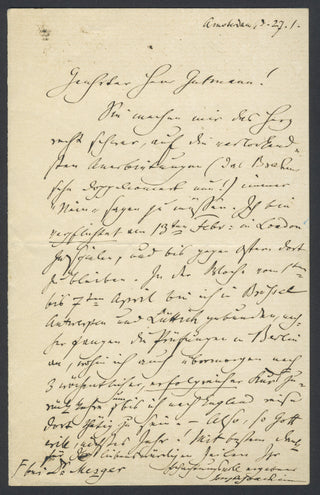 Amsterdam, d. 27. 1.
Geehrter Herr Gutmann!
Sie machen mir das Herz
recht schwer, auf die verlockend-
sten Anerbietungen (das Brahm-
sche Doppelconcert nun!!) immer
"Nein" sagen zu müssen. Ich bin
verpflichtet am 13ten Febr: in London
zu spielen, und bis gegen Ostern dort
zu bleiben. In der Woche vom 1ten
bis 7ten April bin ich in Brüssel
Antwerpen und Lüttich gebunden, nach-
her fangen die Prüfungen in Berlin
an, wohin ich auch übermorgen nach
3 wöchentlicher, erfolgreicher Kur zu-
rück kehre, bis ich nach England reise
dort thätig zu sein. – Also, so Gott
will, nächstes Jahr! Mit bestem Dank
für die liebenswürdigen Zeilen Ihr
hochachtungsvoll ergebener
Joseph Joachim
bei Dr. Mezger